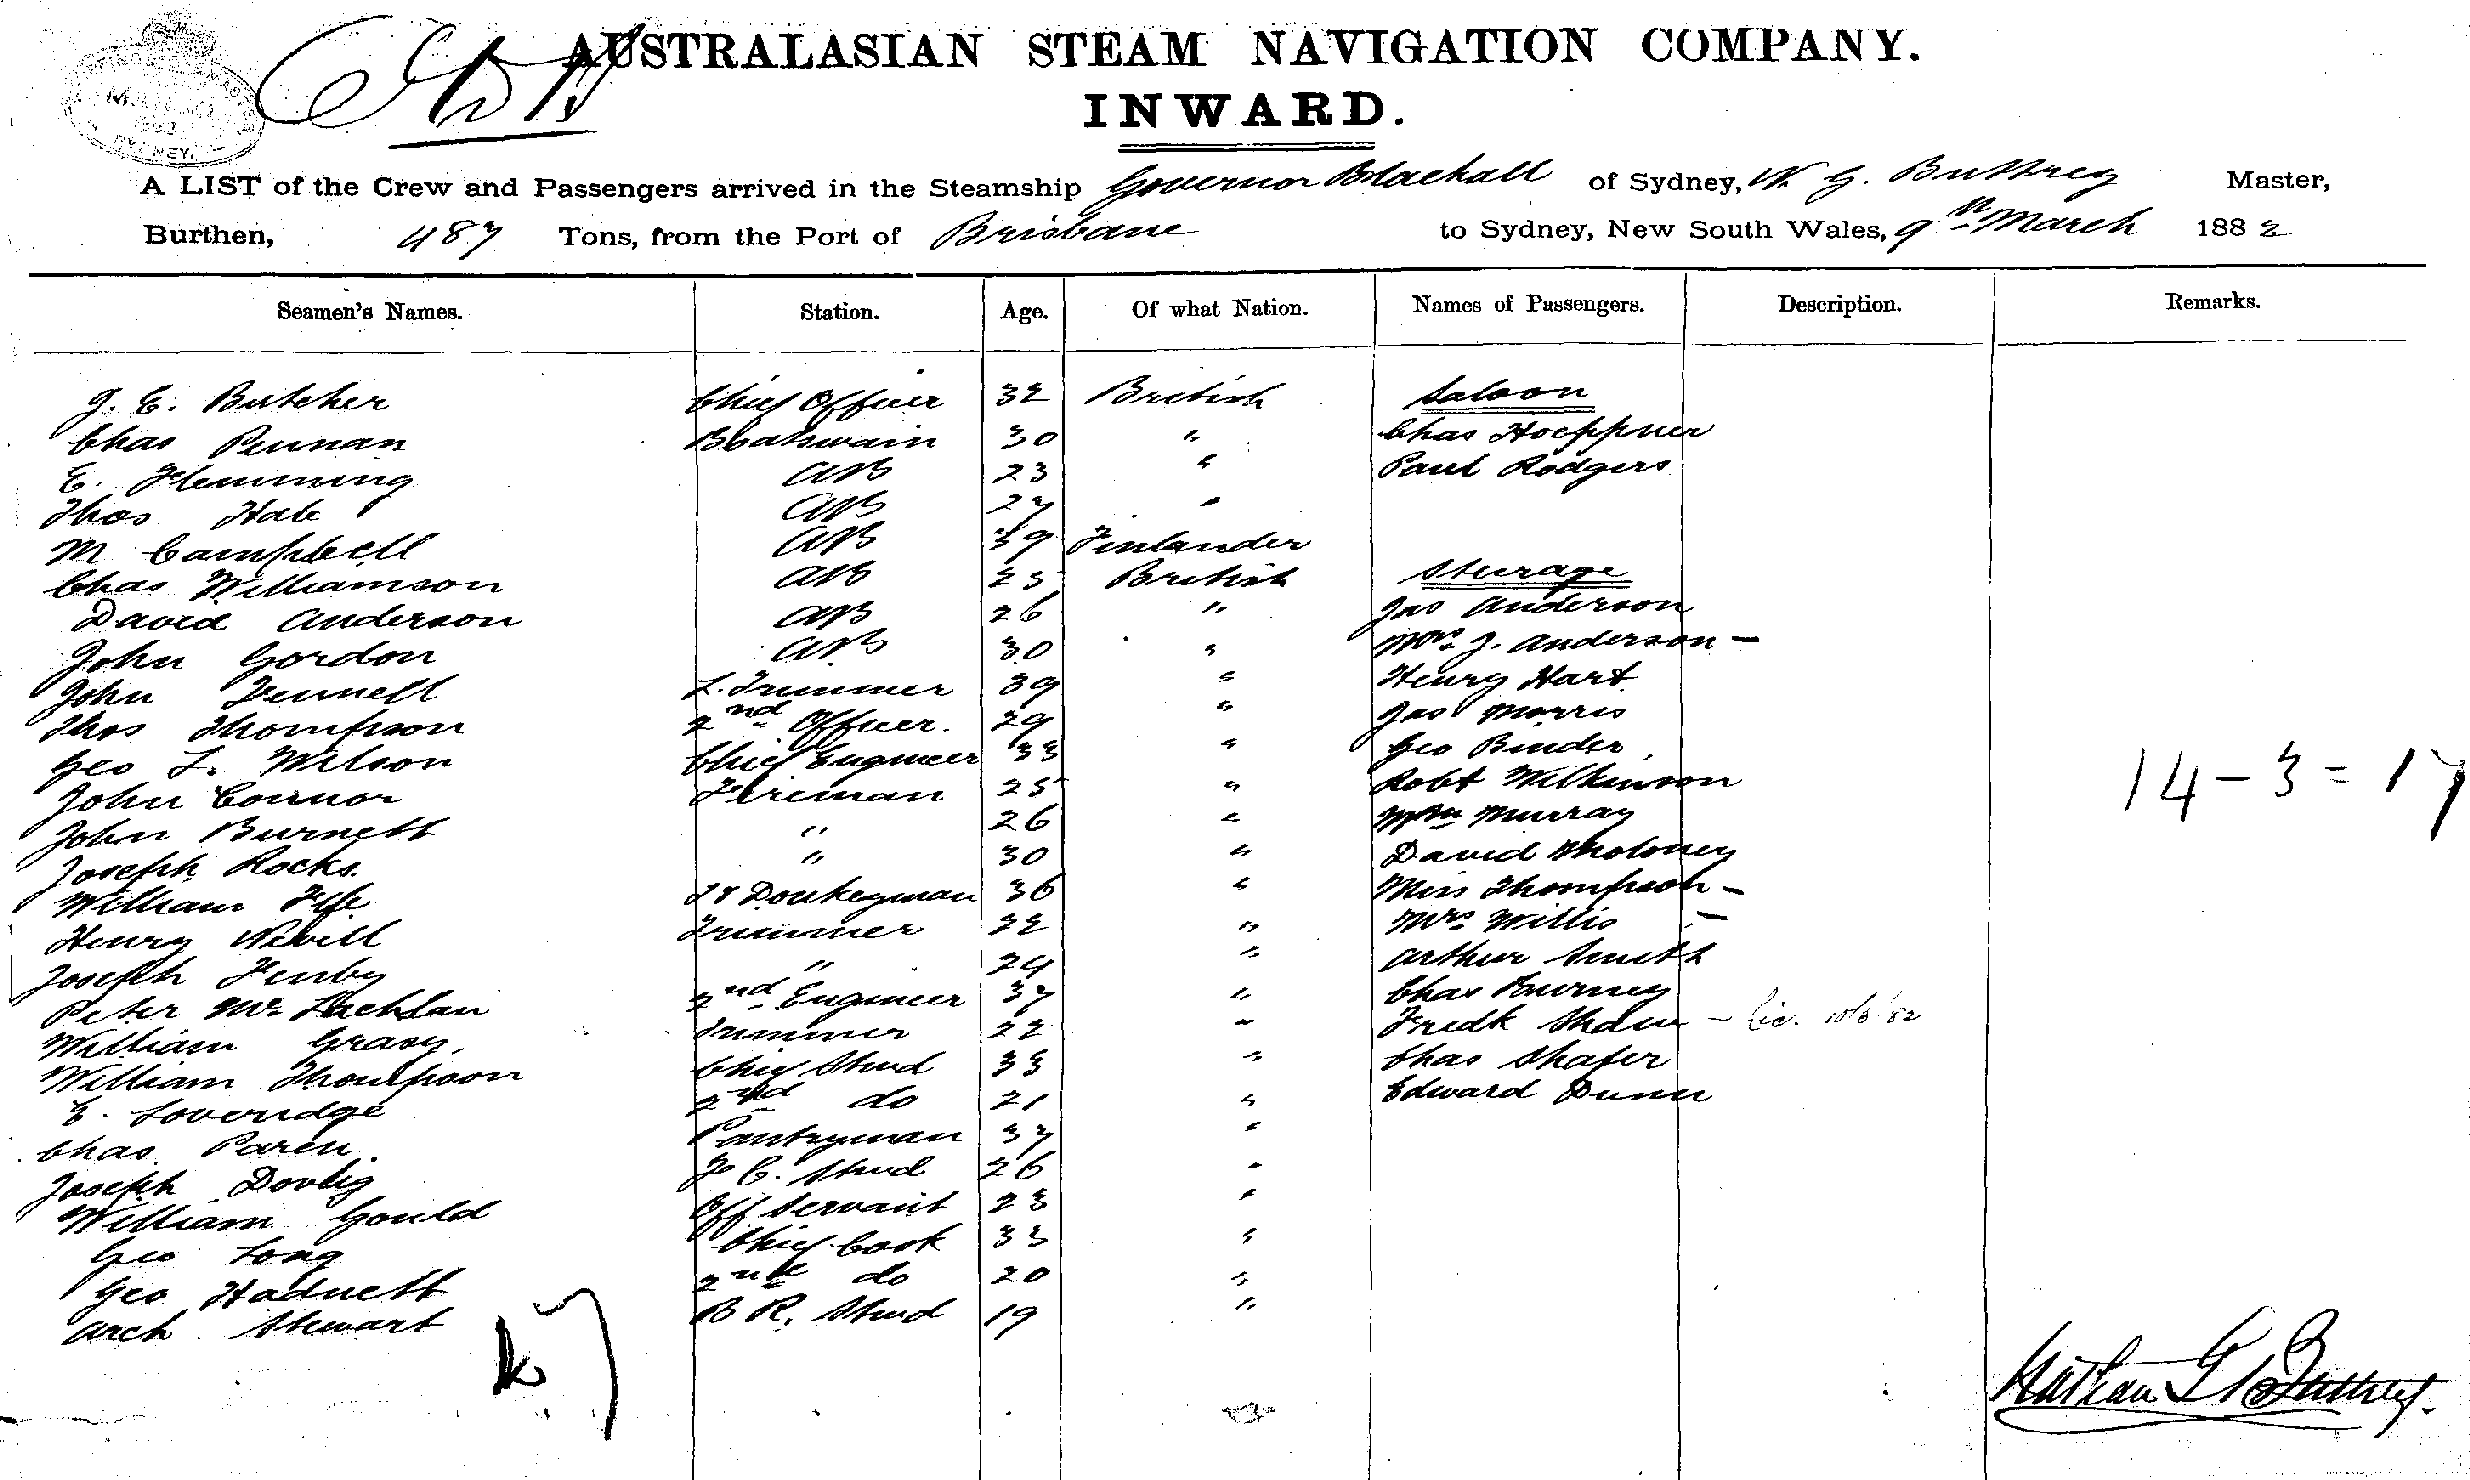 AUSTRALASIAN STEAM NAVIGATION COMPANY.
INWARD.
A LIST of the Crew and Passengers arrived in the Steamship Governor Blackall of Sydney, N. G. Buttrey Master,
Burthen, 487 Tons, from the Port of Brisbane to Sydney, New South Wales, 9th March 1882
Seamen's Names. Station. Age. Of what Nation. Names of Passengers. Description. Remarks.
J. E. Butcher Chief Officer 32 British Saloon
Chas Pennan Boatswain 30 " Chas Hoeppner
E. Flemming AB 23 " Paul Rodgers
Thos Hale AB 27 "
M Campbell AB 39 Finlander
Chas Williamson AB 25 British Steerage
David Anderson AB 26 " Jas Anderson
John Gordon AB 30 " Mrs J. Anderson -
John Fennell L. Trimmer 39 " Henry Hart
Thos Thompson 2nd Officer. 29 " Jas Morris
Geo L. Wilson Chief Engineer 33 " Geo Binder
John Connor Fireman 25 " Robt Wilkinson
14 - 3 = 17
John Burnett " 26 " Wm Murray
Joseph Rocks " 30 " David Moloney
William Fife Donkeyman 36 " Miss Thompson -
Henry Nevill Trimmer 22 " Mrs Willis -
Joseph Fenby " 24 " Arthur Smith
Peter McLachlan 2nd Engineer 37 " Chas
William Gravy Trimmer 22 " Fredk Shaw -
William Thompson Chief Stwd 33 " Chas Shafer
E. Loveridge 2nd do 21 " Edward Dunn
Chas Paren Pantryman 37 "
Joseph F C. Stwd 26 "
William Gould Off Servant 23 "
Geo Long Chief Cook 33 "
Geo Hadnett 2nd do 20 "
Arch Stewart B R. Stwd 19 "
Nathan G Buttrey.